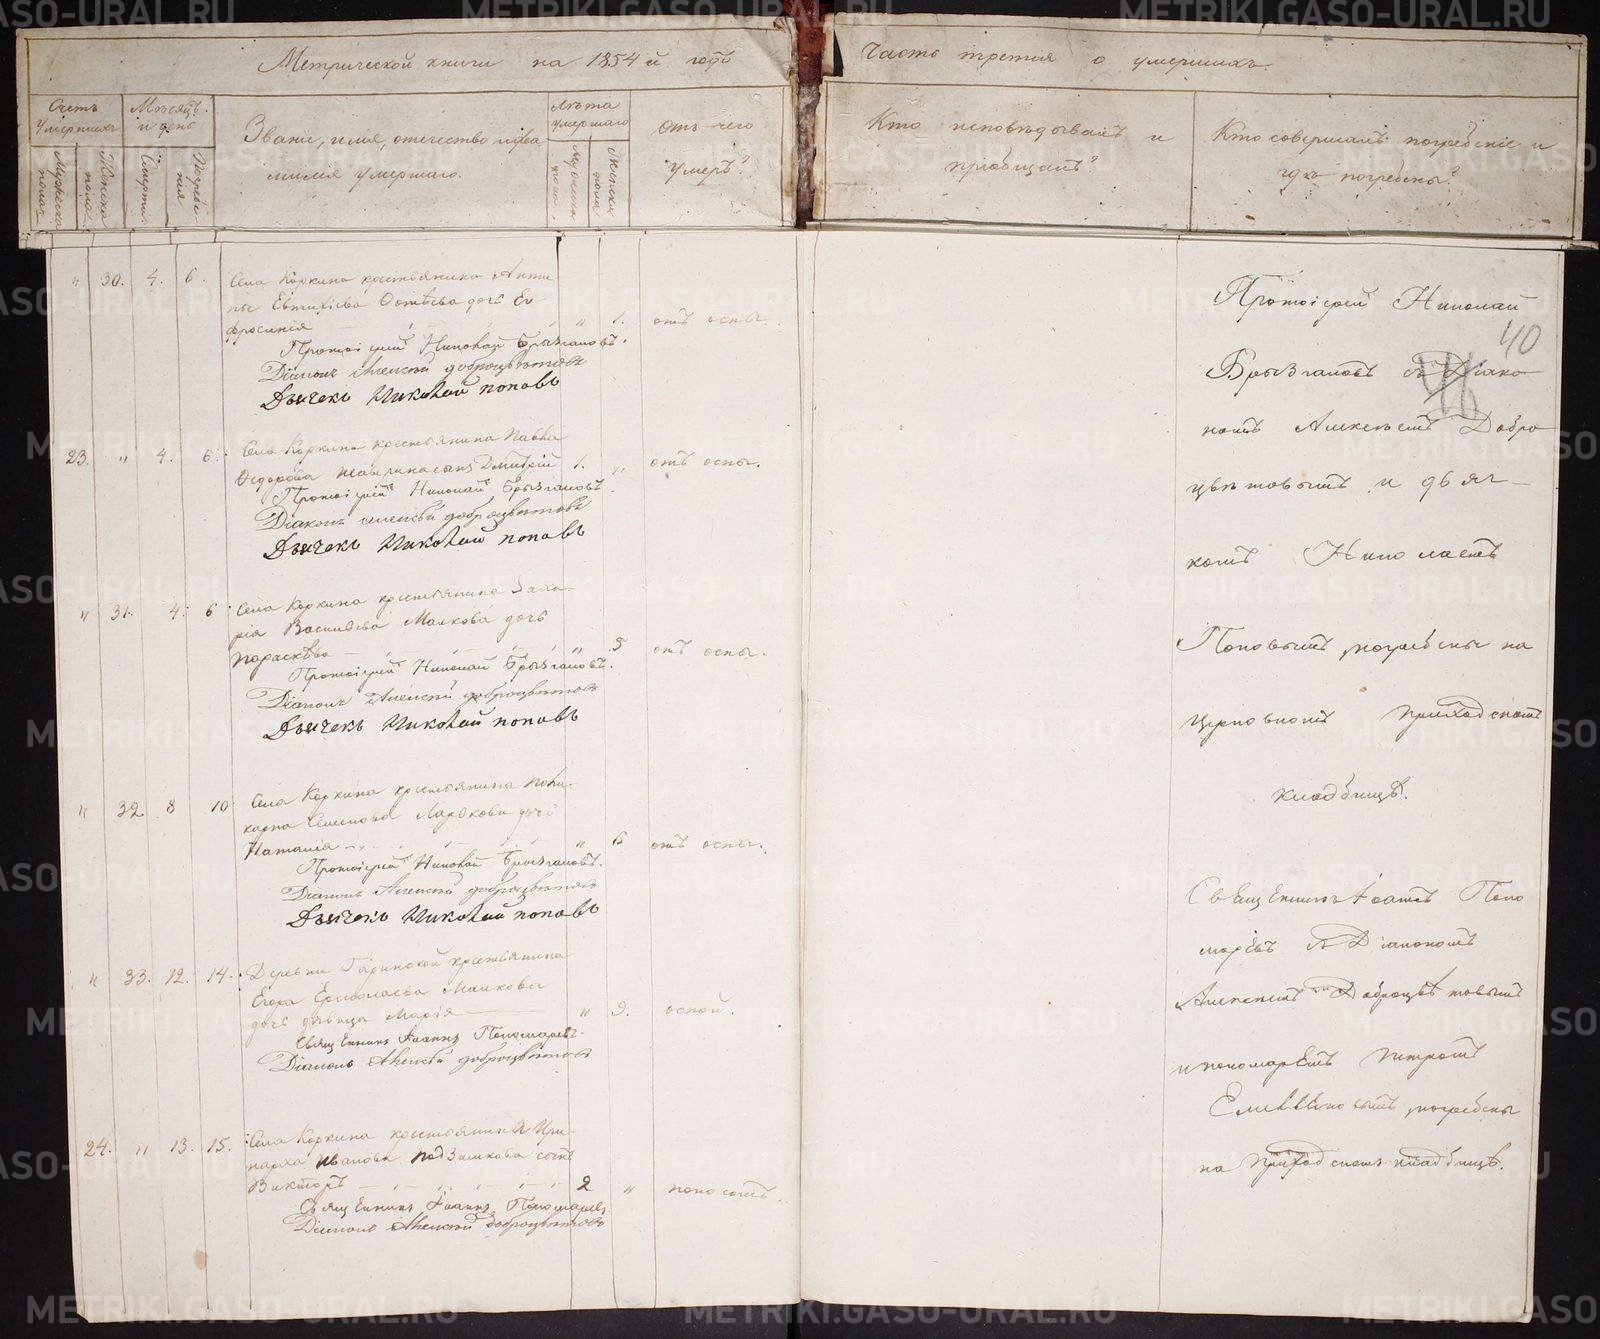 Метрической книги на 1854й годъ
Часть третія о умершихъ.
Счетъ умершихъ
Мѣсяцъ и день
Званіе, имя, отечество и фа
милія умершаго.
Лѣта умершаго
Отъ чего
умеръ?
Кто исповѣдывалъ и
пріобщалъ?
Кто совершалъ погребеніе и
гдѣ погребены?
Мужеска пола
Женска пола
Смерти
Погребенія
Мужеска пола
Женска пола
" 30. 4. 6. Села Коркина крестьянина Анти
пы Евтихіева Фотѣева дочь Ев
фросинія " 1. отъ оспы.
Протоіерей Николай Брызгаловъ.
Діаконъ Алексѣй Доброцвѣтовъ
Дьячекъ Николай Поповъ
23. " 4. 6. Села Коркина крестьянина Павла
Ѳедорова сынъ Дмитрій 1. " отъ оспы.
Протоіерей Николай Брызгаловъ
Діаконъ Алексѣй Доброцвѣтовъ
Дьячекъ Николай Поповъ
" 31. 4. 6. Села Коркина крестьянина
Васильева Малкова дочь
Параскѣва " 5 отъ оспы.
Протоіерей Николай Брызгаловъ.
Діаконъ Алексѣй Доброцвѣтовъ
Дьячекъ Николай Поповъ
" 32 8 10 Села Коркина крестьянина Поли
карпа Семенова дочь
Наталія " 6 отъ оспы.
Протоіерей Николай Брызгаловъ.
Діаконъ Алексѣй Доброцвѣтовъ
Дьячекъ Николай Поповъ
" 33. 12. 14. Деревни Гаринской крестьянина
Егора Ермолаева Малкова
дочь дѣвица Марія " 9. оспой.
Священникъ Іоаннъ Пономаревъ.
Діаконъ Алексѣй Доброцвѣтовъ
24. " 13. 15. Села Коркина крестьянина Ири
нарха Иванова Подзинкова сынъ
Викторъ 2 " поносомъ.
Священникъ Іоаннъ Пономаревъ
Діаконъ Алексѣй Доброцвѣтовъ
Протоіерей Николай
40
Брызгаловъ съ Діако
номъ Алексѣемъ Добро
цвѣтовымъ и дьяч
комъ Николаемъ
Поповымъ погребены на
церковномъ приходскомъ
кладбищѣ.
Священникъ Іоаннъ Поно
маревъ съ Діакономъ
Алексѣемъ Доброцвѣтовымъ
и пономаремъ Петромъ
погребены
на приходскомъ кладбищѣ.
METRIKI.GASO-URAL.RU